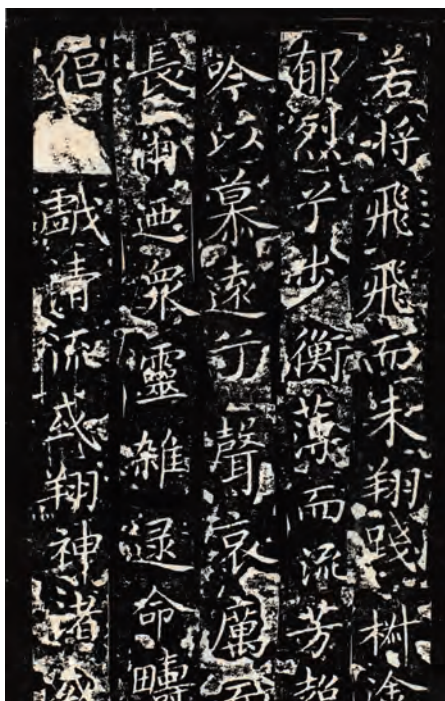 若将飛飛而未翔踐椒塗
郁烈兮步衡薄而流芳超
吟以慕遠兮聲哀厲而
長爾迺衆靈雜遝命疇
侶戲清流或翔神渚或